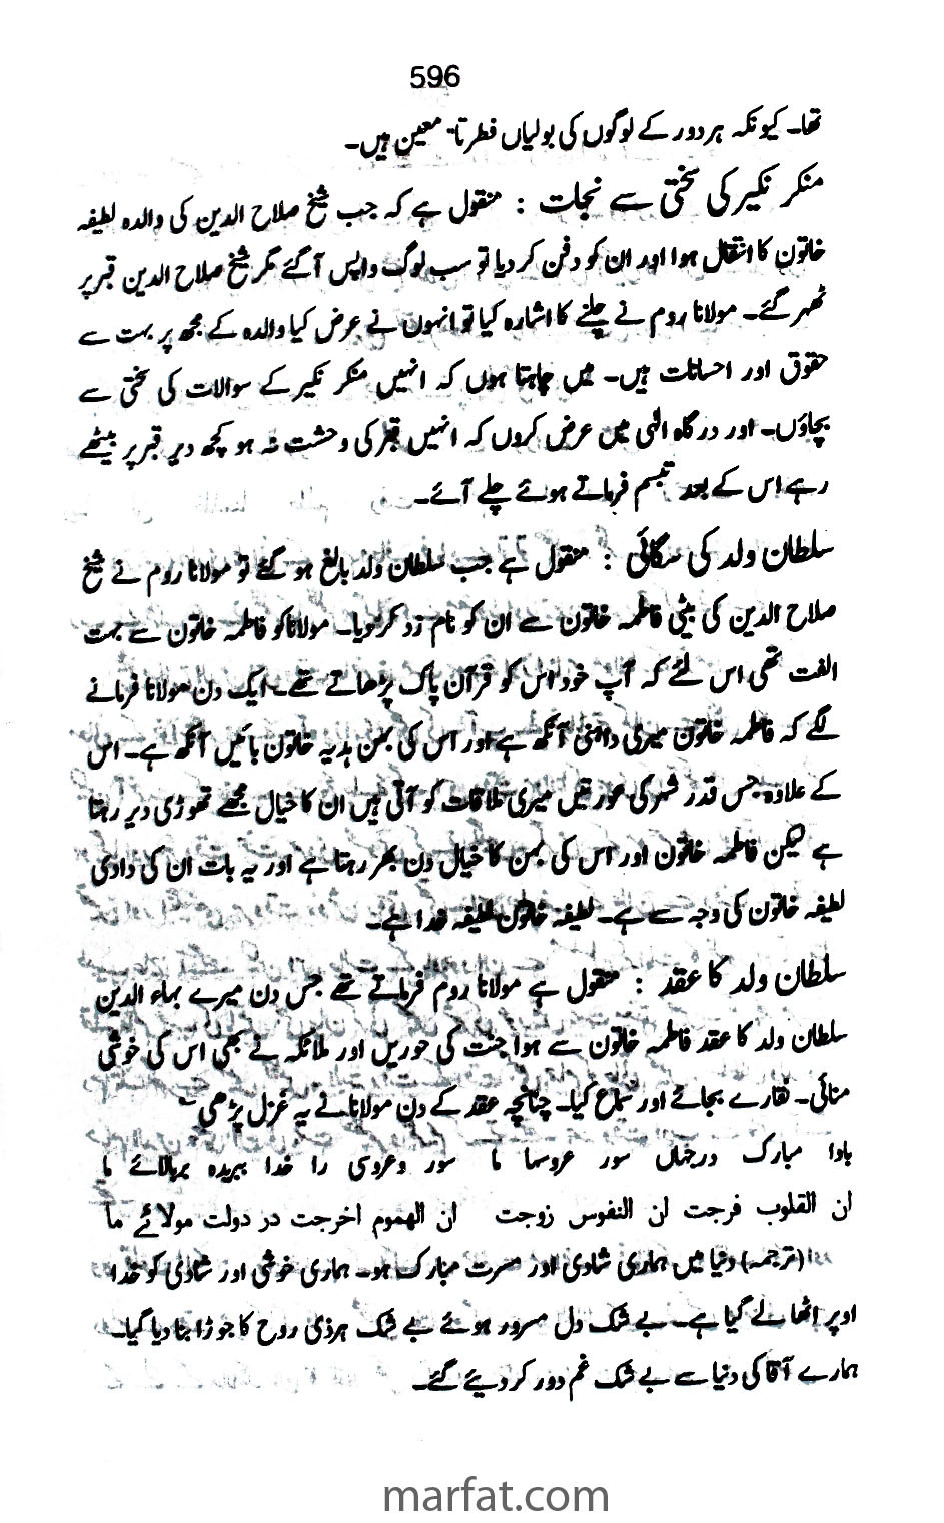 596
تھا۔ کیونکہ ہر دور کے لوگوں کی بولیاں فطرتاً معین ہیں۔
منکر نکیر کی سختی سے نجات : منقول ہے کہ جب شیخ صلاح الدین کی والدہ لطیفہ
خاتون کا انتقال ہوا اور ان کو دفن کر دیا تو سب لوگ واپس آگئے مگر شیخ صلاح الدین قبر پر
ٹھہر گئے۔ مولانا روم نے چلنے کا اشارہ کیا تو انہوں نے عرض کیا والدہ کے مجھ پر بہت سے
حقوق اور احسانات ہیں۔ میں چاہتا ہوں کہ انہیں منکر نکیر کے سوالات کی سختی سے
بچاؤں۔ اور درگاہ الٰہی میں عرض کروں کہ انہیں قبر کی وحشت نہ ہو کچھ دیر قبر پر بیٹھے
رہے اس کے بعد تبسم فرماتے ہوئے چلے آئے۔
سلطان ولد کی سگائی : منقول ہے جب سلطان ولد بالغ ہو گئے تو مولانا روم نے شیخ
صلاح الدین کی بیٹی فاطمہ خاتون سے ان کو نام زد کر دیا۔ مولانا کو فاطمہ خاتون سے بہت
الفت تھی اس لئے کہ آپ خود اس کو قرآن پاک پڑھاتے تھے۔ ایک دن مولانا فرمانے
لگے کہ فاطمہ خاتون میری داہنی آنکھ ہے اور اس کی بہن ہدیہ خاتون بائیں آنکھ ہے۔ اس
کے علاوہ جس قدر شہر کی عورتیں میری ملاقات کو آتی ہیں ان کا خیال مجھے تھوڑی دیر رہتا
ہے لیکن فاطمہ خاتون اور اس کی بہن کا خیال دن بھر رہتا ہے اور یہ بات ان کی دادی
لطیفہ خاتون کی وجہ سے ہے۔ لطیفہ خاتون لطیفہ خدا ہے۔
سلطان ولد کا عقد : منقول ہے مولانا روم فرماتے تھے جس دن میرے بہاء الدین
سلطان ولد کا عقد فاطمہ خاتون سے ہوا جنت کی حوریں اور ملائکہ نے بھی اس کی خوشی
منائی۔ نقارے بجائے اور سماع کیا۔ چنانچہ عقد کے دن مولانا نے یہ غزل پڑھی
بادا مبارک درجہاں سور عروسہا ما سور وعروسی را خدا ببریدہ بربالائے ما
ان القلوب فرجت ان النفوس زوجت ان الھموم اخرجت در دولت مولائے ما
(ترجمہ) دنیا میں ہماری شادی اور مسرت مبارک ہو۔ ہماری خوشی اور شادی کو خدا
اوپر اٹھا لے گیا ہے۔ بے شک دل مسرور ہوئے بے شک ہر ذی روح کا جوڑا بنا دیا گیا۔
ہمارے آقا کی دنیا سے بے شک غم دور کر دیئے گئے۔
marfat.com